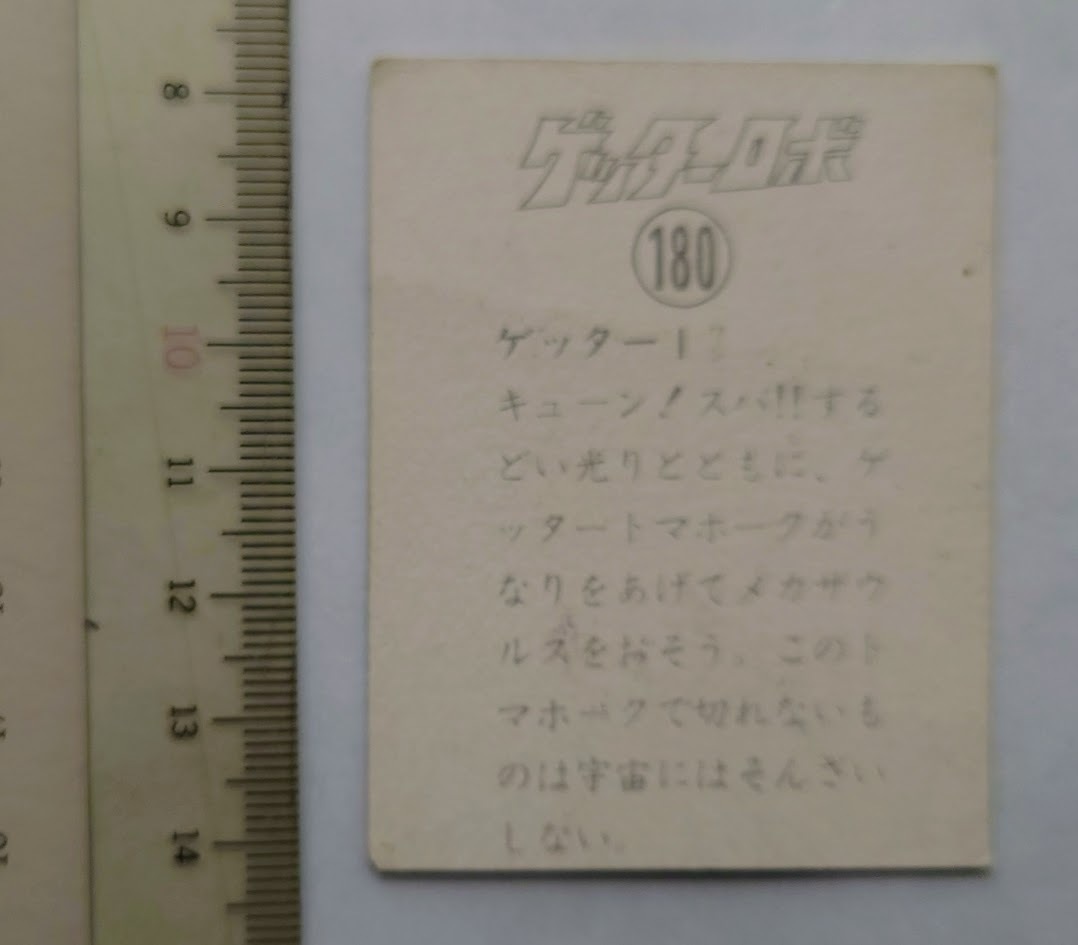 8
9
10
11
12
13
14
ゲッターロボ
180
ゲッター1
キューン!スバ!!する
どい光りとともに、ゲ
ッタートマホークがう
なりをあげてメカザウ
ルスをおそう。このト
マホークで切れないも
のは宇宙にはそんざい
しない。